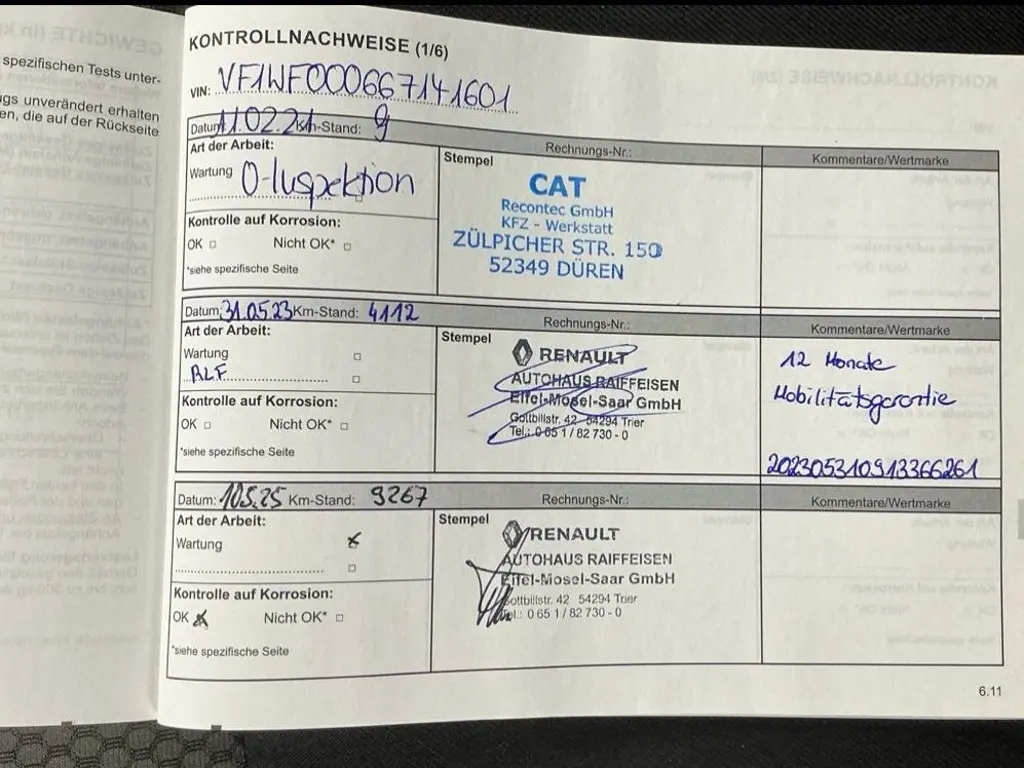 spezifischen Tests unter-
ugs unverändert erhalten
en, die auf der Rückseite
KONTROLLNACHWEISE (1/6)
VIN: VF1WF000667141601
Datum: 11.02.21 Km-Stand: 9
Rechnungs-Nr.:
Kommentare/Wertmarke
Art der Arbeit:
Wartung 0-Iuspektion
Kontrolle auf Korrosion:
OK □ Nicht OK* □
*siehe spezifische Seite
Stempel
CAT
Recontec GmbH
KFZ - Werkstatt
ZÜLPICHER STR. 150
52349 DÜREN
Datum: 31.05.23 Km-Stand: 4112
Rechnungs-Nr.:
Kommentare/Wertmarke
Art der Arbeit:
Wartung □
ALF □
Kontrolle auf Korrosion:
OK □ Nicht OK* □
*siehe spezifische Seite
Stempel
RENAULT
AUTOHAUS RAIFFEISEN
Eifel-Mosel-Saar GmbH
Gottbillstr. 42 54294 Trier
Tel.: 0 65 1 / 82 730 - 0
12 Monate
Mobilitätsgarantie
20230531091336​6261
Datum: 10.5.25 Km-Stand: 9267
Rechnungs-Nr.:
Kommentare/Wertmarke
Art der Arbeit:
Wartung x
□
Kontrolle auf Korrosion:
OK x Nicht OK* □
*siehe spezifische Seite
Stempel
RENAULT
AUTOHAUS RAIFFEISEN
Eifel-Mosel-Saar GmbH
Gottbillstr. 42 54294 Trier
Tel.: 0 65 1 / 82 730 - 0
6.11